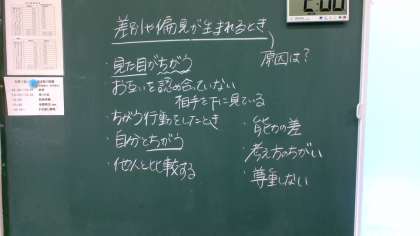 差別や偏見が生まれるとき
原因は?
・見た目がちがう
お互いを認め合っていない
相手を下に見ている
・ちがう行動をしたとき
・自分とちがう
・他人と比較する
・能力の差
・考え方のちがい
・尊重しない